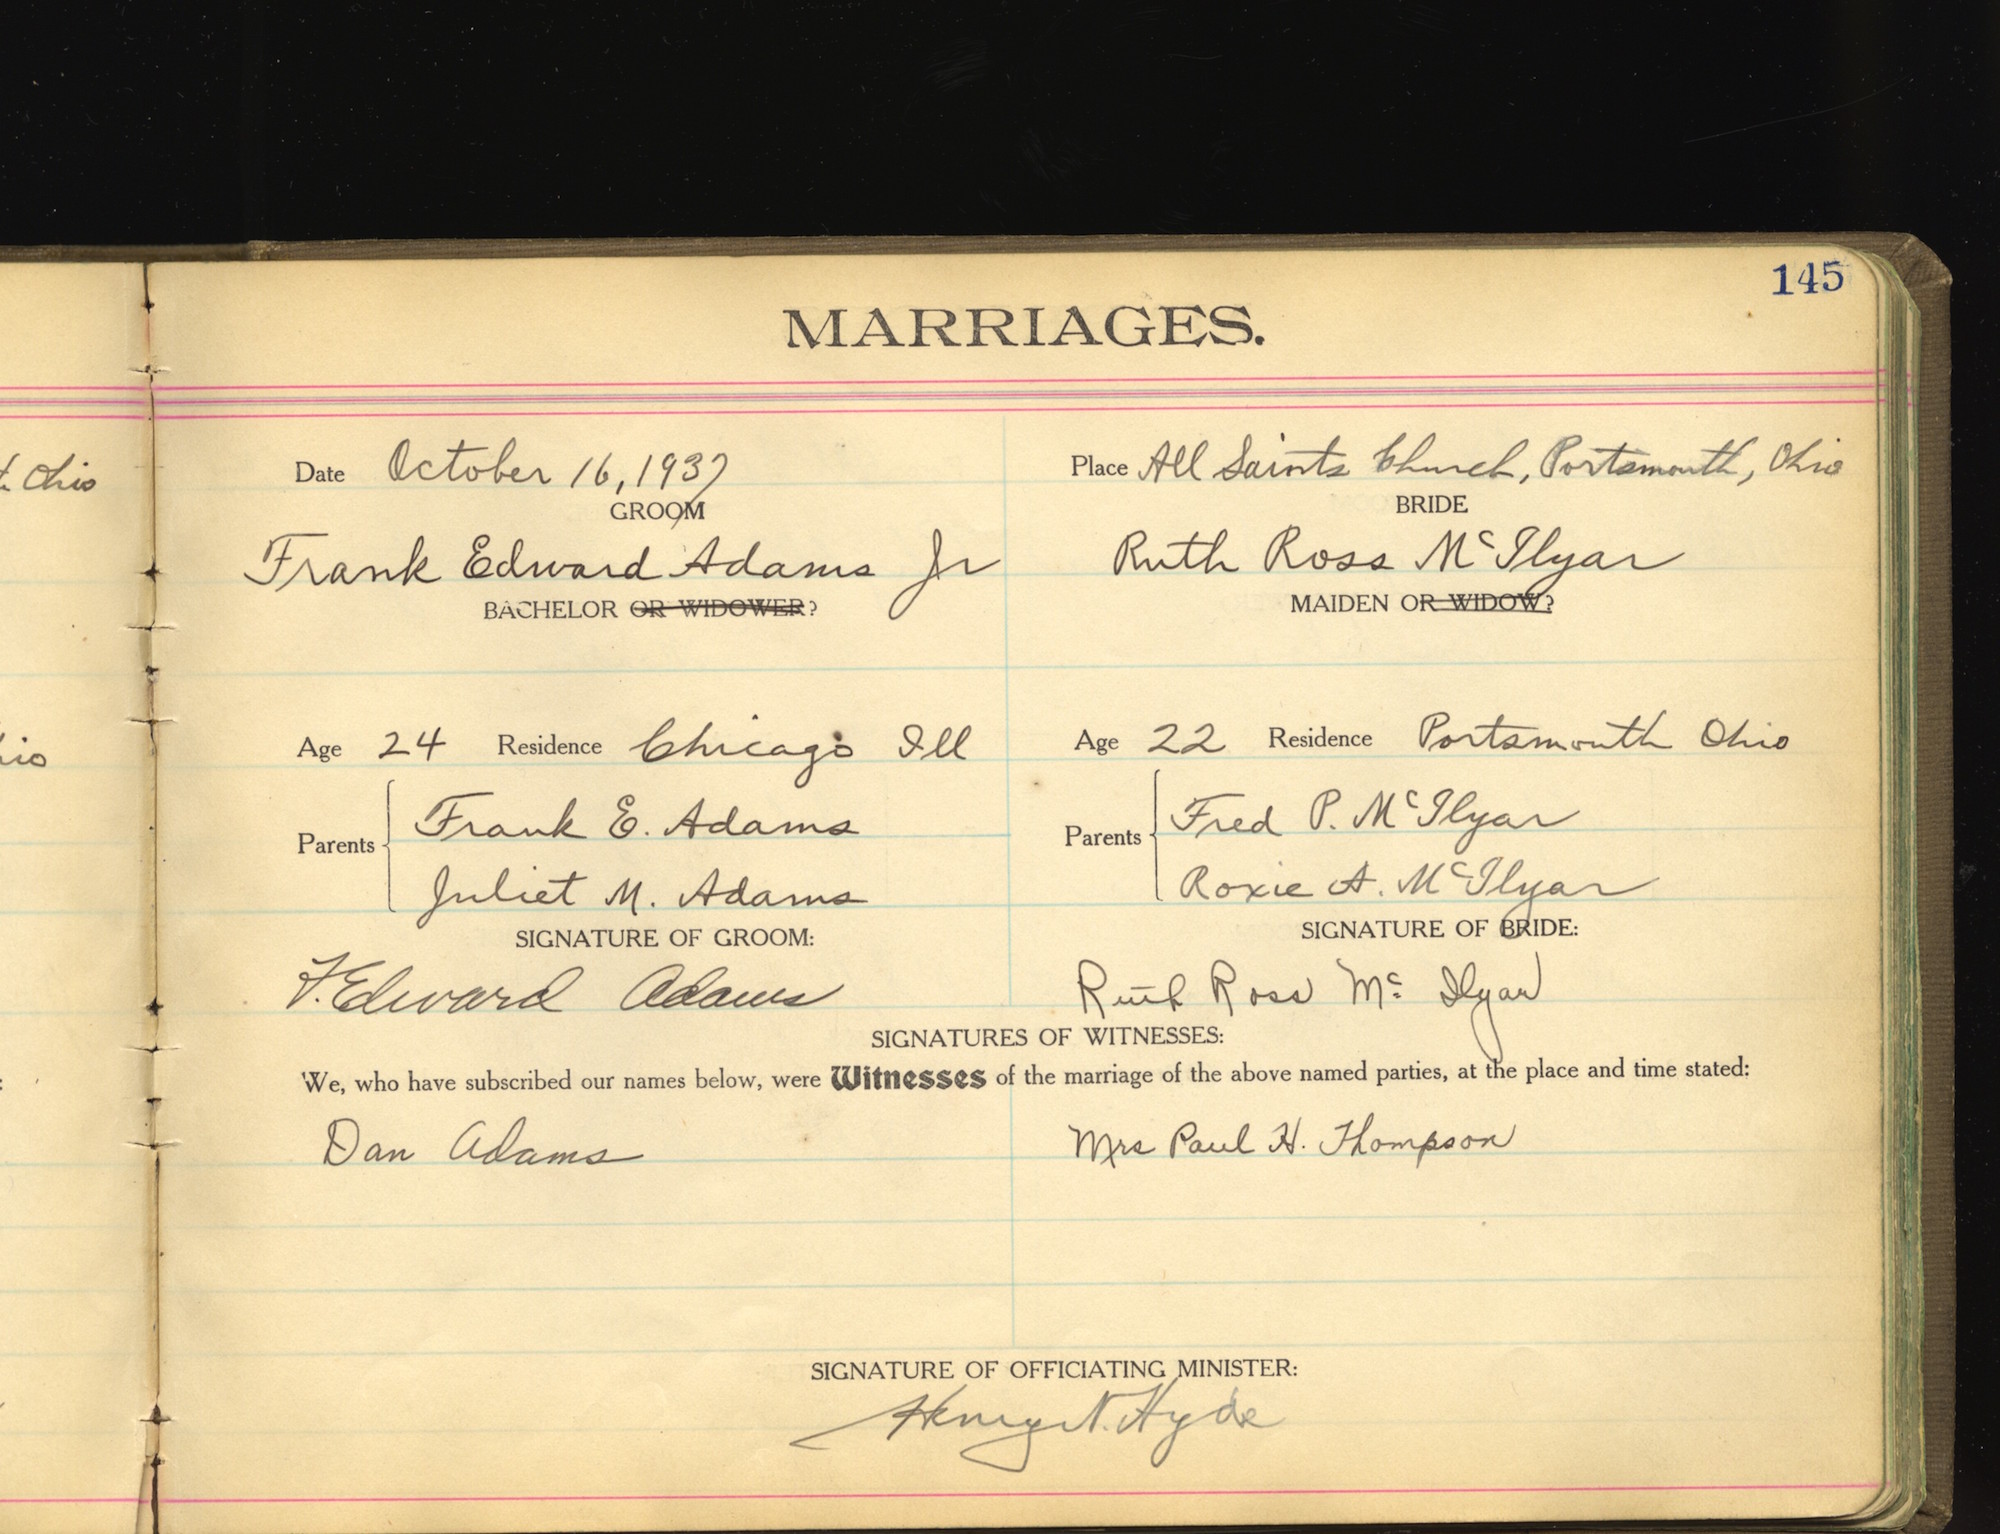 145
MARRIAGES.
t. Ohio
Date October 16, 1937 Place All Saints Church, Portsmouth, Ohio
GROOM BRIDE
Frank Edward Adams Jr Ruth Ross McIlyar
BACHELOR OR WIDOWER? MAIDEN OR WIDOW?
hio
Age 24 Residence Chicago Ill Age 22 Residence Portsmouth Ohio
Parents Frank E. Adams Parents Fred P. McIlyar
Juliet M. Adams Roxie A. McIlyar
SIGNATURE OF GROOM: SIGNATURE OF BRIDE:
F. Edward Adams Ruth Ross Mc Ilyar
SIGNATURES OF WITNESSES:
We, who have subscribed our names below, were Witnesses of the marriage of the above named parties, at the place and time stated:
Dan Adams Mrs Paul H. Thompson
SIGNATURE OF OFFICIATING MINISTER:
Henry N. Hyde